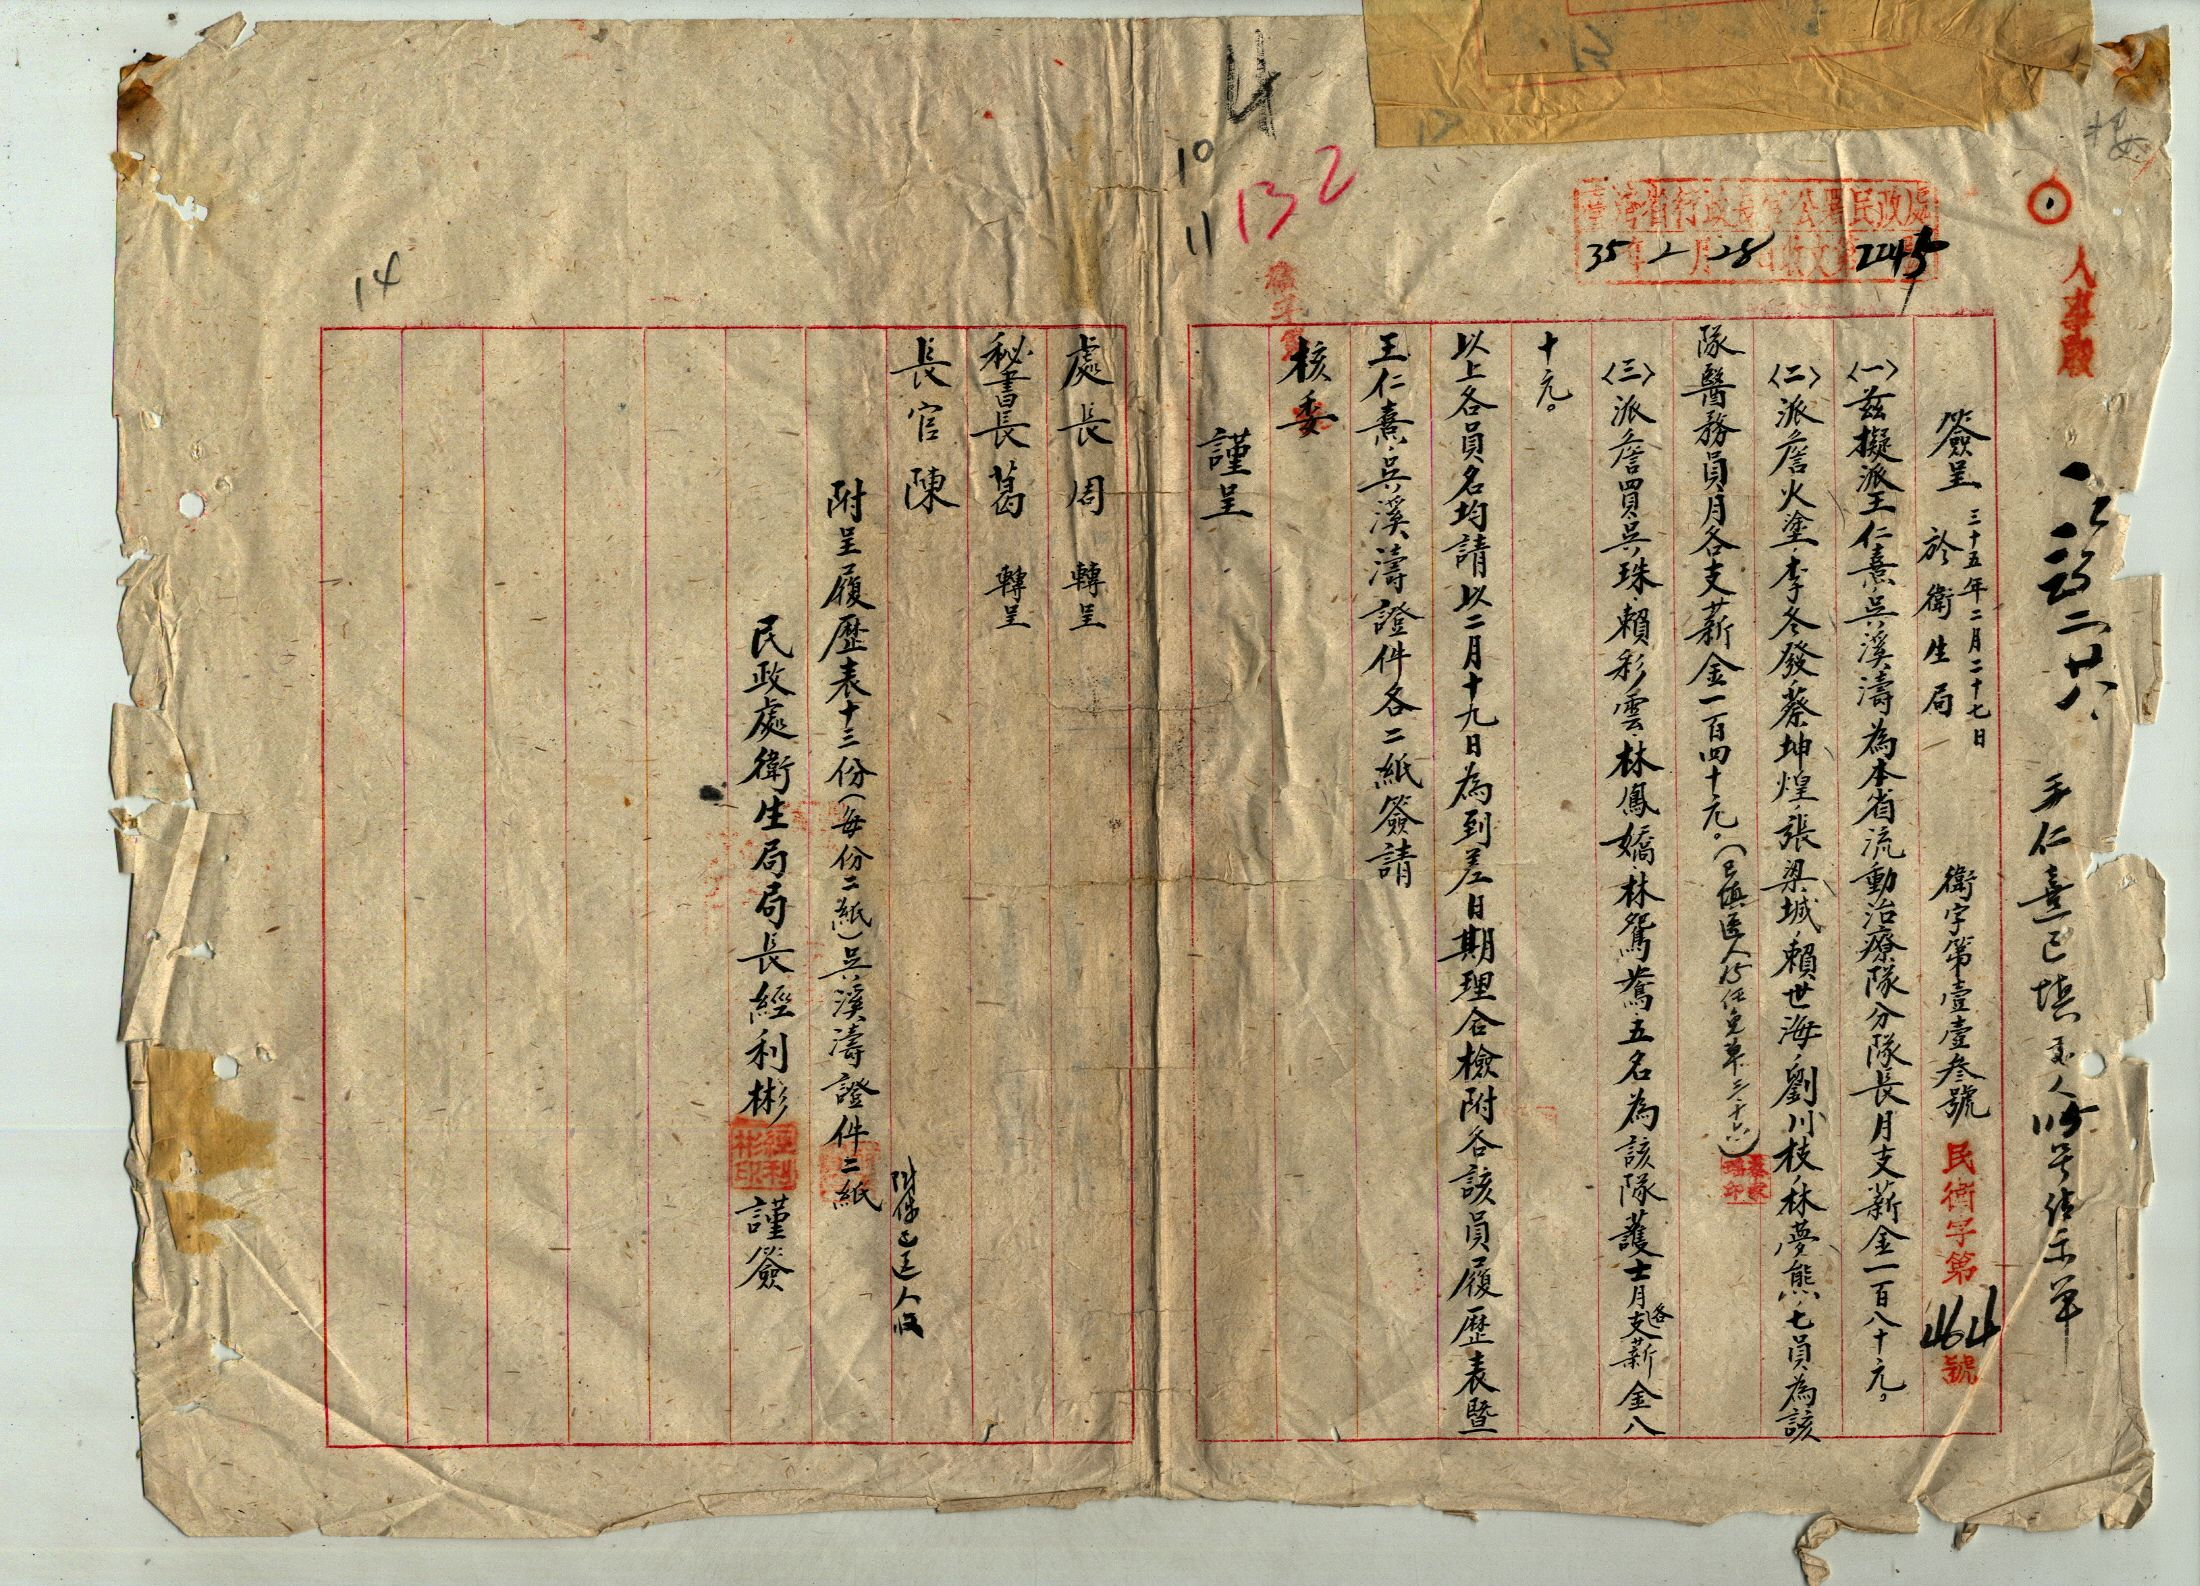 人事股
王仁熹已填
臺灣省行政長官公署民政處
35年2月28日收文第2245號
簽呈 三十五年二月二十七日 於衛生局 衛字第壹壹叁號 民衛字第464號
〈一〉茲擬派王仁熹、吳溪濤為本省流動治療隊分隊長月支薪金一百八十元。
〈二〉派詹火塗、李冬發、蔡坤煌、張梁城、賴世海、劉川枝、林夢熊、七員為該
隊醫務員月各支薪金一百四十元。
〈三〉派詹買、吳珠、賴彩雲、林鳳嬌、林鴛鴦、五名為該隊護士月各支薪金八
十元。
以上各員名均請以二月十九日為到差日期理合檢附各該員履歷表暨
王仁熹、吳溪濤證件各二紙簽請
核委
謹呈
132
10
11
14
處長周 轉呈
秘書長葛 轉呈
長官陳
附件已送人收
附呈履歷表十三份(每份二紙)吳溪濤證件二紙
民政處衛生局局長經利彬 謹簽
經利彬印